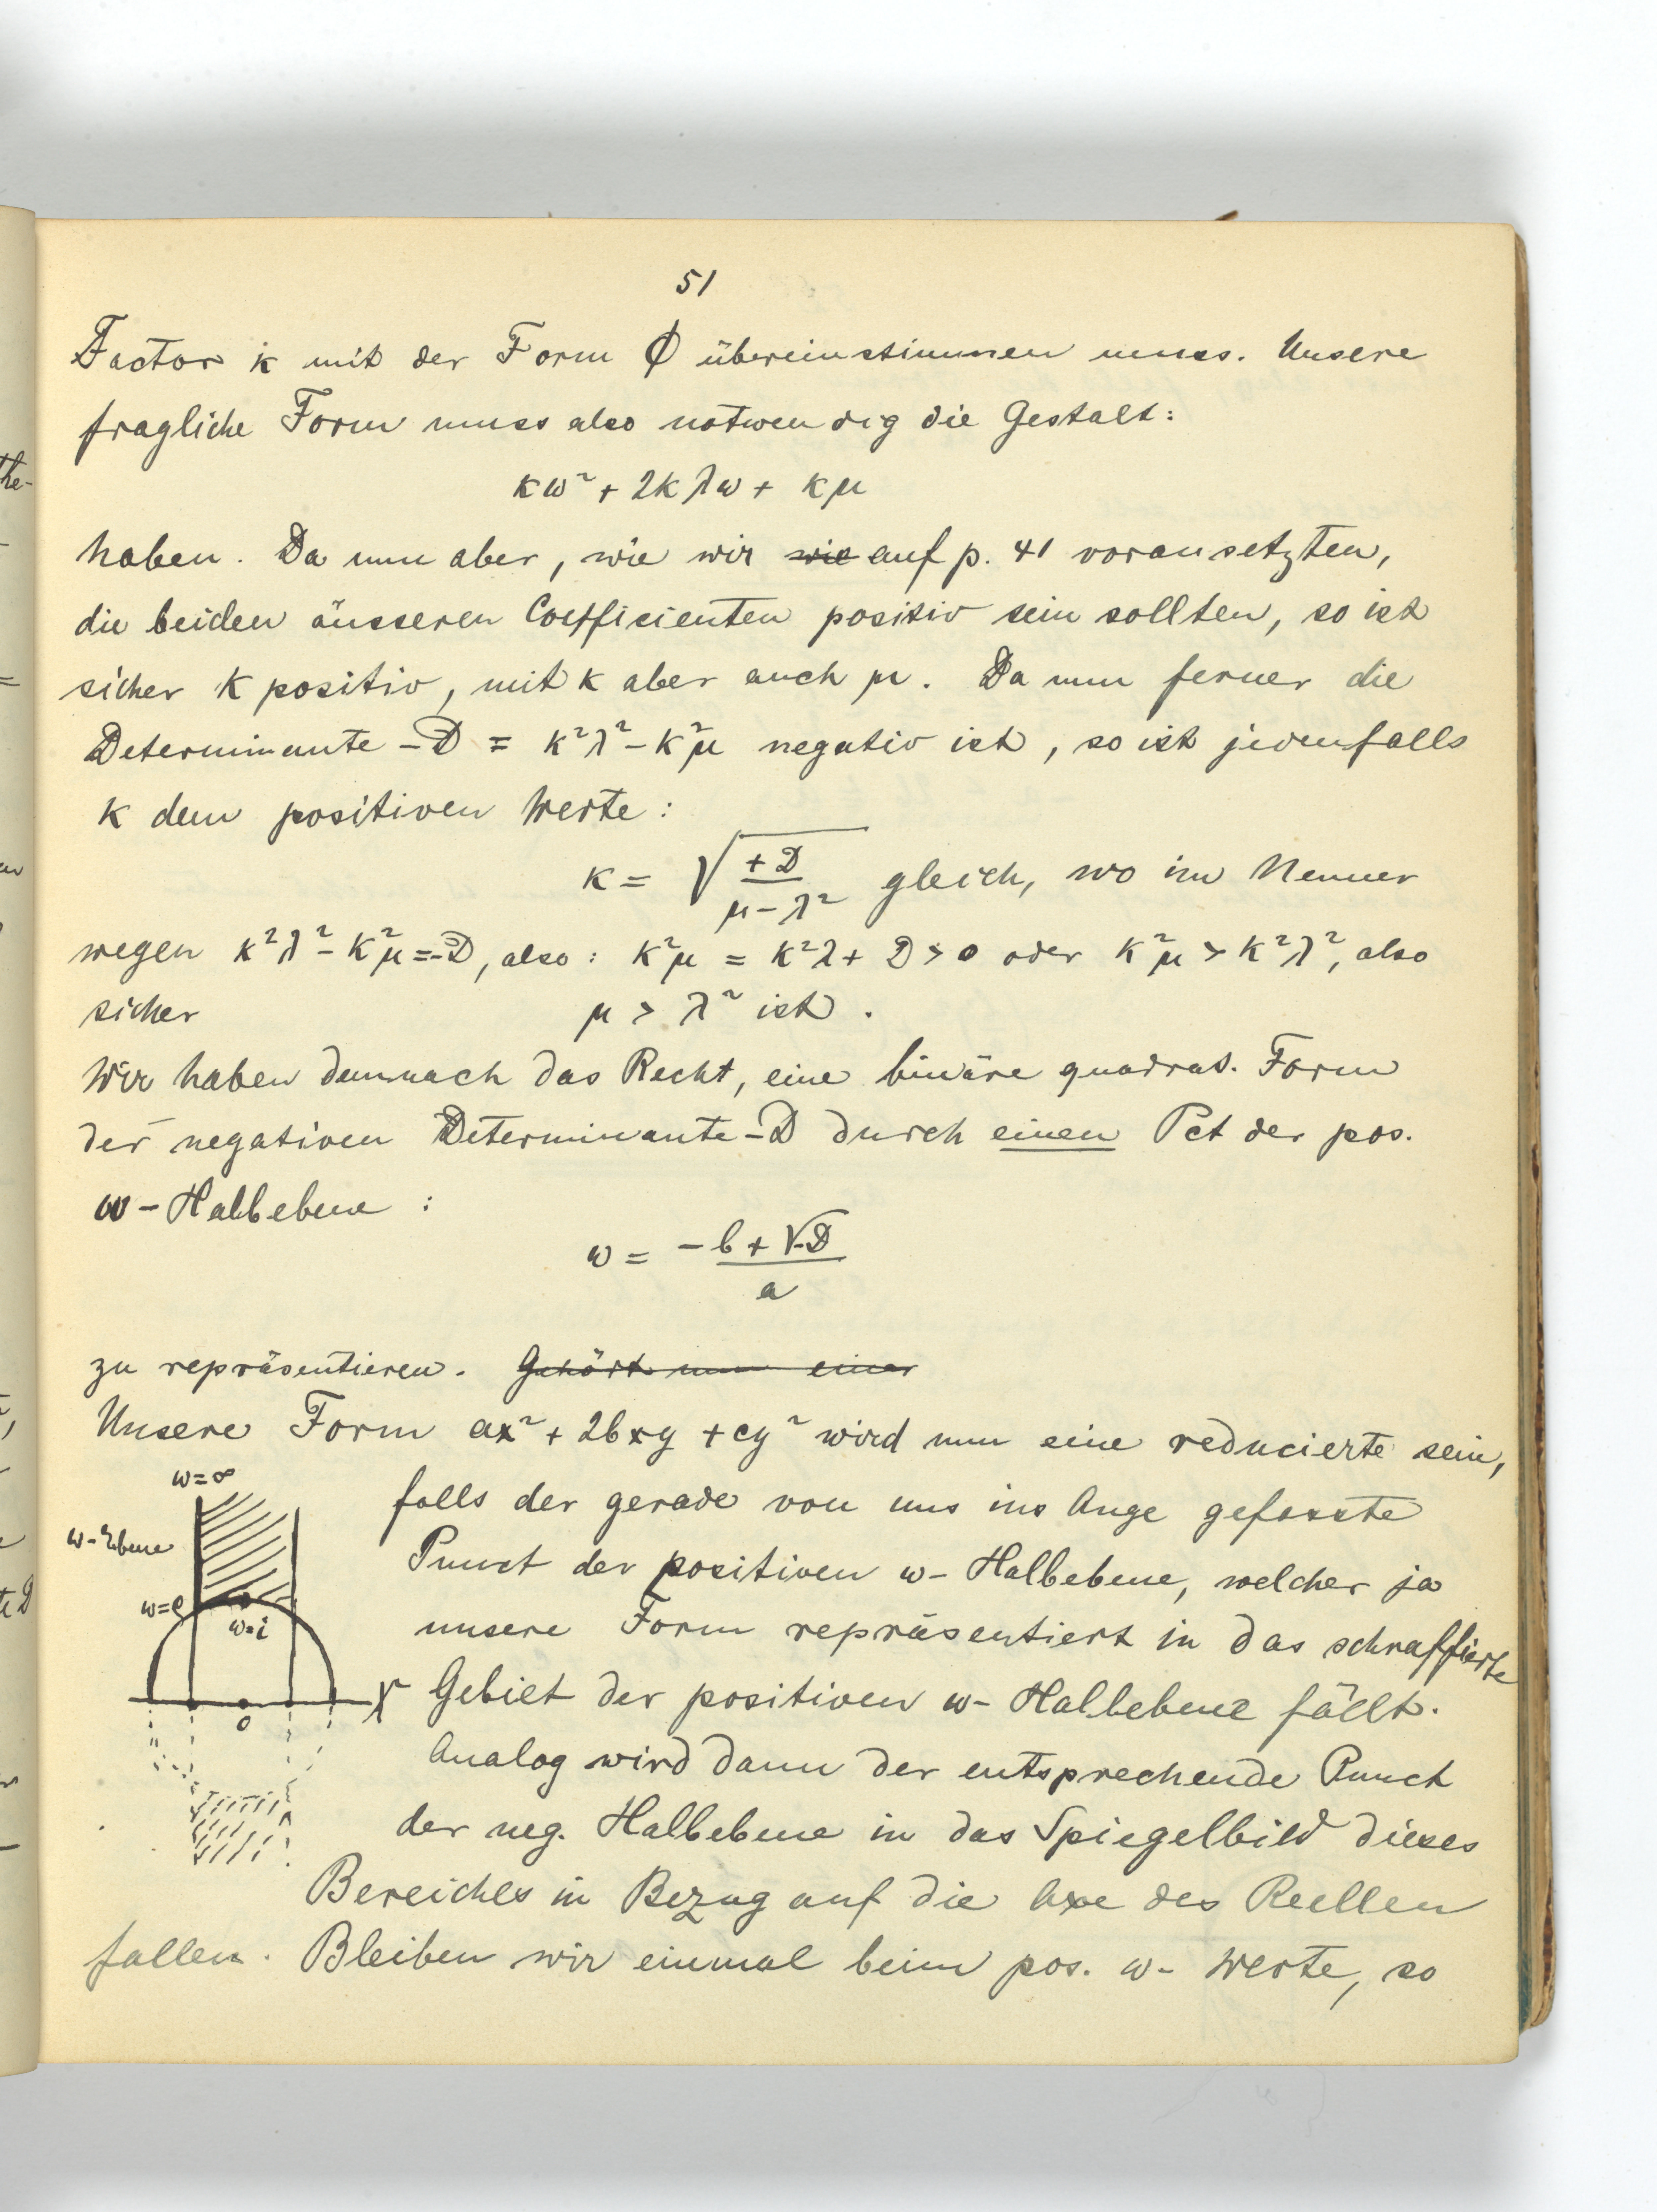 51
Factor k mit der Form Φ übereinstimmen muss. Unsere
fragliche Form muss also notwendig die Gestalt:
kω² + 2kλω + kμ
haben. Da nun aber, wie wir wie auf p. 41 voraussetzten,
die beiden äusseren Coefficienten positiv sein sollten, so ist
sicher k positiv, mit k aber auch μ. Da nun ferner die
Determinante -D = k²λ² - k²μ negativ ist, so ist jedenfalls
k dem positiven Werte:
k = √(+D / μ - λ²) gleich, wo im Nenner
wegen k²λ² - k²μ = -D, also: k²μ = k²λ + D > 0 oder k²μ > k²λ², also
sicher μ > λ² ist.
Wir haben demnach das Recht, eine binäre quadrat. Form
der negativen Determinante -D durch einen Pct der pos.
ω - Halbebene :
ω = -b + √-D / a
zu repräsentieren. Gehört nun einer
Unsere Form ax² + 2bxy + cy² wird nun eine reducierte sein,
falls der gerade von uns ins Auge gefasste
Punct der positiven ω - Halbebene, welcher ja
unsere Form repräsentiert in das schraffierte
Gebiet der positiven ω - Halbebene fällt.
Analog wird dann der entsprechende Punct
der neg. Halbebene in das Spiegelbild dieses
Bereiches in Bezug auf die Axe des Reellen
fallen. Bleiben wir einmal beim pos. ω - Werte, so
ω=∞
ω-Ebene
ω=ρ
ω=i
0